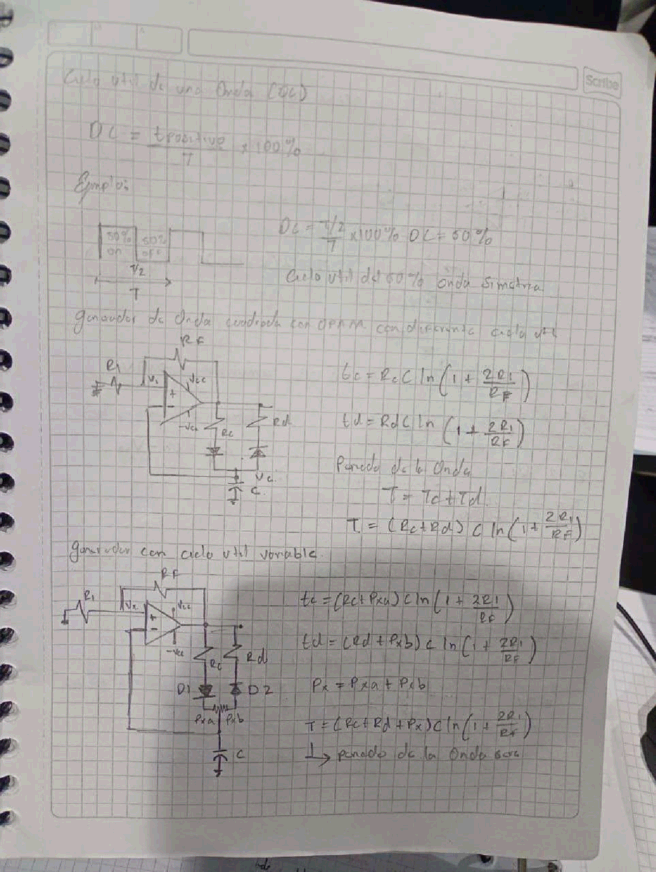 Scribe
Ciclo util de una Onda (DC)
DC = tpositivo/T x 100%
Ejemplo:
50% on 50% off
T/2
T
DC = T/2/T x100% DC = 50%
Ciclo util del 50% onda simetrica
generador de Onda cuadrada con OPAM con diferente ciclo util
R1 RF V1 Vcc + - -Vcc Rc Rd Vc C
tc = Rc C ln(1 + 2R1/RF)
td = Rd C ln(1 + 2R1/RF)
Periodo de la Onda
T = Tc + Td
T = (Rc+Rd) C ln(1 + 2R1/RF)
generador con ciclo util variable
R1 RF Vcc + - -Vcc Rc Rd
D1 D2
Pxa Pxb
C
tc = (Rc+Pxa) C ln(1 + 2R1/RF)
td = (Rd + Pxb) C ln(1 + 2R1/RF)
Px = Pxa + Pxb
T = (Rc+Rd+Px) C ln(1 + 2R1/RF)
periodo de la Onda